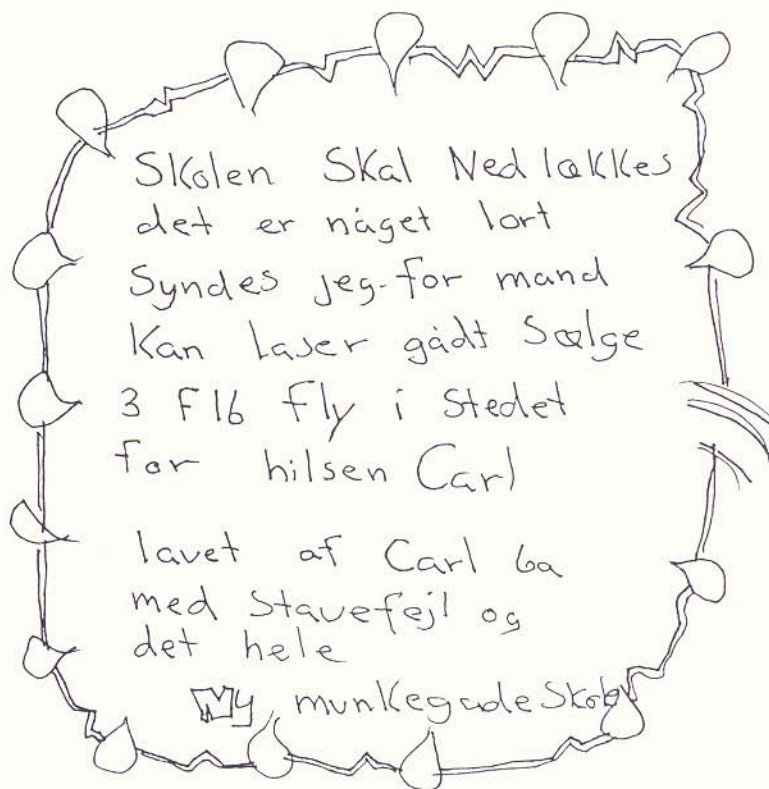 Skolen Skal Ned lækkes
det er någet lort
Syndes jeg-for mand
Kan laser gådt Sælge
3 F16 fly i Stedet
for hilsen Carl
lavet af Carl 6a
med Stavefejl og
det hele
Ny munkegadeSkole